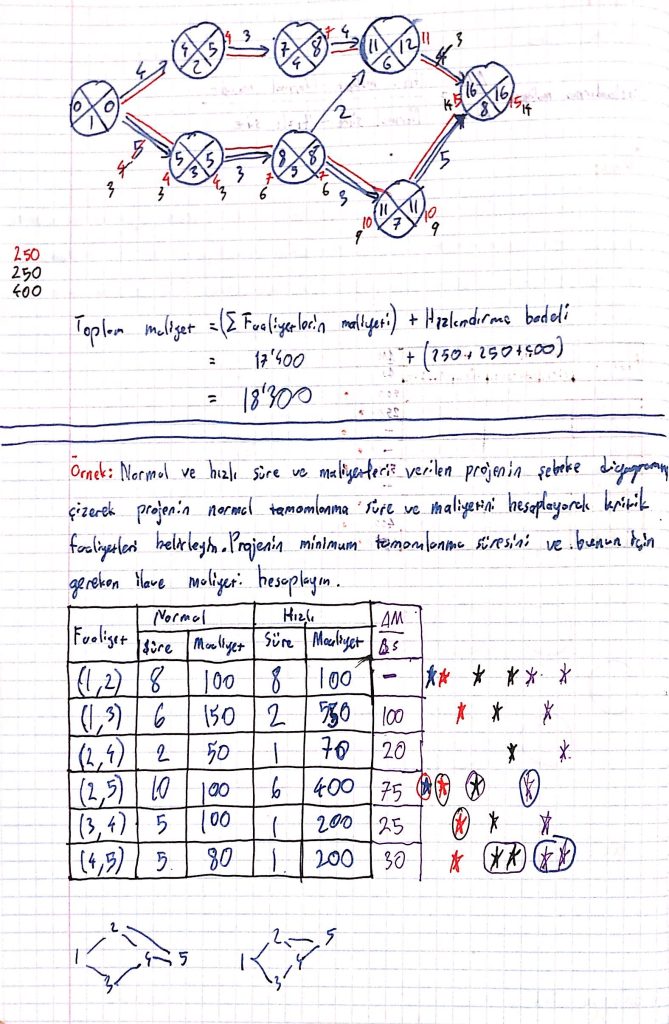 4 5 4 3 7 8 7 4 11 12 11 4 3
2 4 6
4 16 16
0 0 14 15 8 15 14
1 2
5 5 5 8 8 5
4 3 3
3 4 3 4 3 7 5 7
3 6 6 3 11 11
10 7 10
9 9
250
250
400
Toplam maliyet = (Σ Faaliyetlerin maliyeti) + Hızlandırma bedeli
= 17'400 + (250+250+400)
= 18'300
Örnek: Normal ve hızlı süre ve maliyetleri verilen projenin şebeke diyagramını
çizerek projenin normal tamamlanma süre ve maliyetini hesaplayarak kritik
faaliyetleri belirleyin. Projenin minimum tamamlanma süresini ve bunun için
gereken ilave maliyeti hesaplayın.
Normal Hızlı ΔM
Faaliyet Süre Maaliyet Süre Maaliyet Δs
(1,2) 8 100 8 100 -
(1,3) 6 150 2 550 100
(2,4) 2 50 1 70 20
(2,5) 10 100 6 400 75
(3,4) 5 100 1 200 25
(4,5) 5 80 1 200 30
2 2 5
1 4 5 1 4
3 3